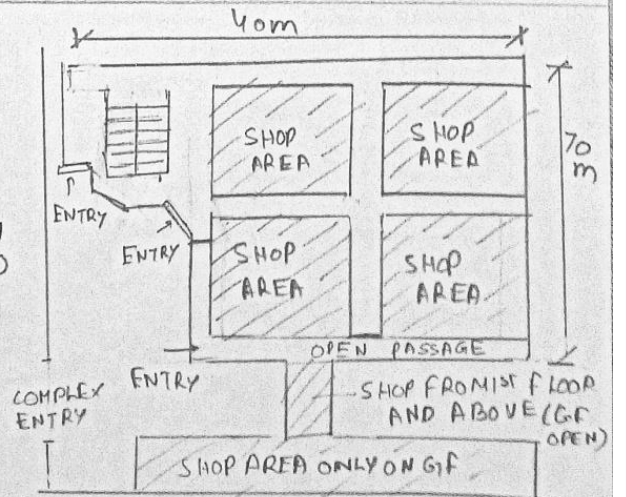 40m
SHOP
AREA
SHOP
AREA
70
m
ENTRY
ENTRY
SHOP
AREA
SHOP
AREA
OPEN PASSAGE
ENTRY
COMPLEX
ENTRY
SHOP FROM 1ST FLOOR
AND ABOVE (GF
OPEN)
SHOP AREA ONLY ON GF